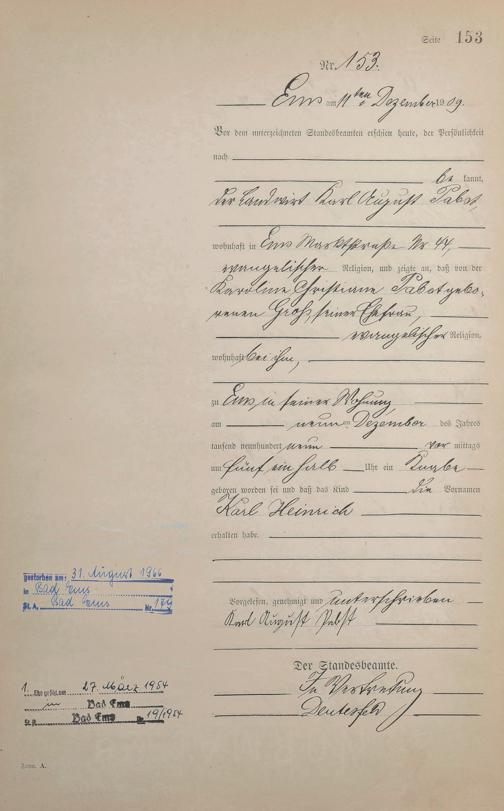 Seite 153
Nr. 153.
Ems am 11ten Dezember 1909.
Vor dem unterzeichneten Standesbeamten erschien heute, der Persönlichkeit
nach
be kannt,
der Landwirt Karl August Pabst,
wohnhaft in Ems Marktstraße Nr 44,
evangelischer Religion, und zeigte an, daß von der
Karoline Christiane Pabst gebo-
renen Groß, seiner Ehefrau,
evangelischer Religion,
wohnhaft bei ihm,
zu Ems in seiner Wohnung,
am neun ten Dezember des Jahres
tausend neunhundert neun vor mittags
um fünf ein halb Uhr ein Knabe
geboren worden sei und daß das Kind die Vornamen
Karl Heinrich
erhalten habe.
Vorgelesen, genehmigt und unterschrieben
Karl August Pabst
Der Standesbeamte.
In Vertretung
gestorben am: 31. August 1966
in Bad Ems
St. A. Bad Ems Nr.
1. Ehe geschl. am 27. März 1954
in Bad Ems
St. A. Bad Ems Nr. 19/1954
Form. A.